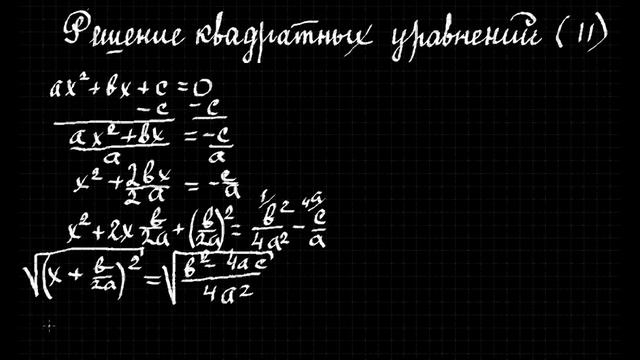 Решение квадратных уравнений (11)
ax² + bx + c = 0
- c - c
(ax² + bx)/a = -c/a
x² + 2bx/2a = -c/a
x² + 2x b/2a + (b/2a)² = b²/4a² - c/a
1 4a
√(x + b/2a)² = √(b² - 4ac)/4a²